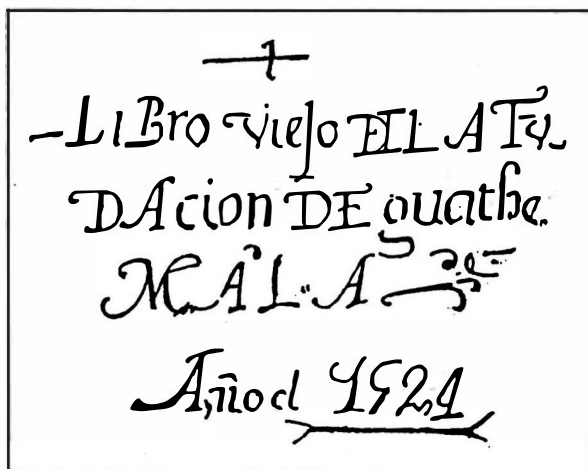 -LiBro viejo DELA Fu-
DAcion DE guathe.
MALA
Año d 1524